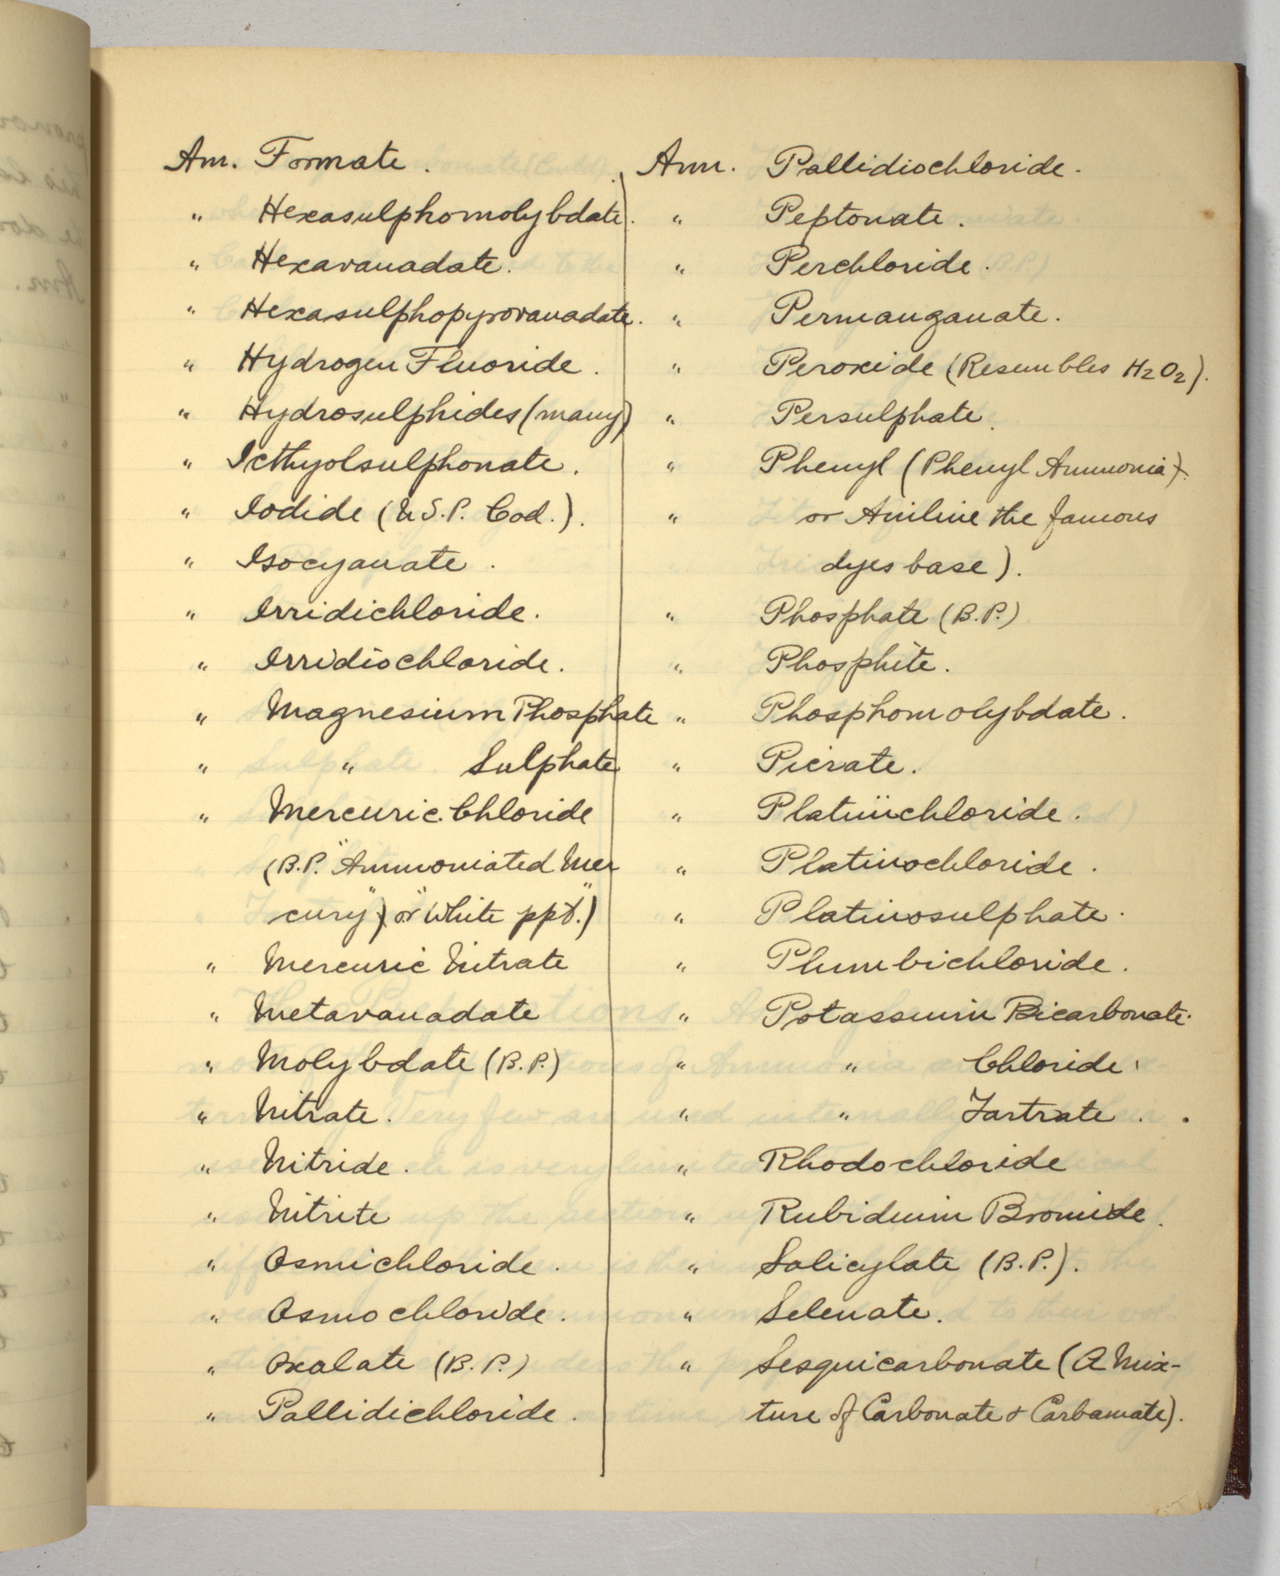 Am. Formate.
" Hexasulphomolybdate.
" Hexavanadate.
" Hexasulphopyrovanadate.
" Hydrogen Fluoride.
" Hydrosulphides (many)
" Icthyolsulphonate.
" Iodide (U.S.P. Cod.).
" Isocyanate.
" Irridichloride.
" Irridiochloride.
" Magnesium Phosphate
" " Sulphate
" Mercuric Chloride
(B.P. "Ammoniated Mer
cury") or "White ppt.")
" Mercuric Nitrate
" Metavanadate
" Molybdate (B.P.)
" Nitrate.
" Nitride.
" Nitrite
" Osmichloride.
" Osmochloride.
" Oxalate (B.P.)
" Pallidichloride.
Am. Pallidiochloride.
" Peptonate.
" Perchloride.
" Permanganate.
" Peroxide (Resembles H2O2).
" Persulphate.
" Phenyl (Phenyl Ammonia)
" or Aniline the famous
dyes base).
" Phosphate (B.P.)
" Phosphite.
" Phosphomolybdate.
" Picrate.
" Platinichloride.
" Platinochloride.
" Platinosulphate.
" Plumbichloride.
" Potassium Bicarbonate.
" " Chloride.
" " Tartrate.
" Rhodochloride
" Rubidium Bromide.
" Salicylate (B.P.).
" Selenate.
" Sesquicarbonate (A Mix-
ture of Carbonate & Carbamate).